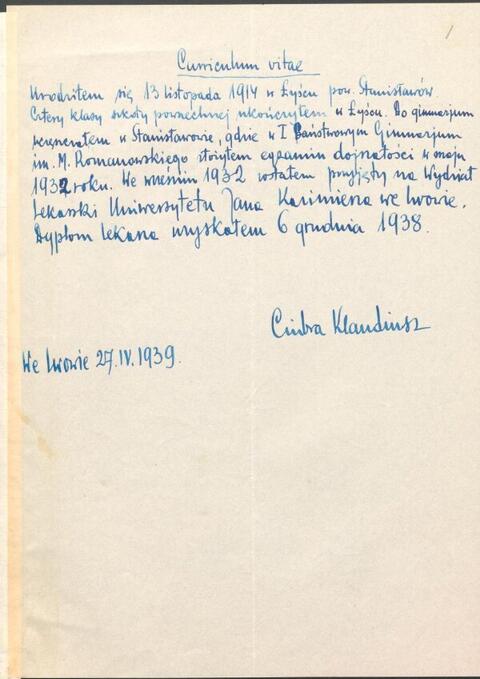 1
Curriculum vitae
Urodziłem się 13 listopada 1914 w Łyścu pow. Stanisławów.
Cztery klasy szkoły powszechnej ukończyłem w Łyścu. Do gimnazjum
uczęszczałem w Stanisławowie, gdzie w I Państwowym Gimnazjum
im. M. Romanowskiego złożyłem egzamin dojrzałości w maju
1932 roku. We wrześniu 1932 zostałem przyjęty na Wydział
Lekarski Uniwersytetu Jana Kazimierza we Lwowie.
Dyplom lekarza uzyskałem 6 grudnia 1938.
Klaudiusz
We Lwowie 27.IV.1939.